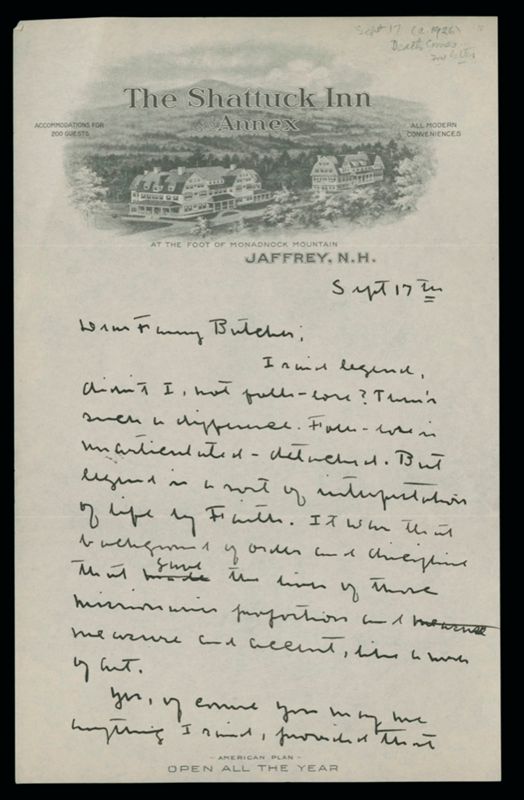 Sept 17 (c. 1926)
Death Comes
The Shattuck Inn
and Annex
ACCOMMODATIONS FOR
200 GUESTS
ALL MODERN
CONVENIENCES
AT THE FOOT OF MONADNOCK MOUNTAIN
JAFFREY, N.H.
Sept 17th
Dear Fanny Butcher;
I said legend,
didn't I, not folk-lore? There's
such a difference. Folk-lore is
unarticulated - detached. But
legend is a sort of interpretation
of life by Faith. It was that
background of order and discipline
that made gave the lives of those
missionaries proportion and measure
measure and accent, like a work
of art.
Yes, of course you may use
anything I said, provided that
- AMERICAN PLAN -
OPEN ALL THE YEAR